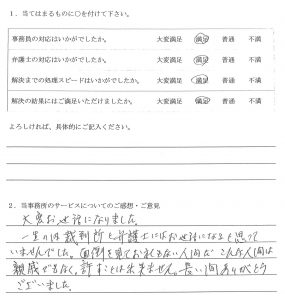 1．当てはまるものに○を付けて下さい。
事務員の対応はいかがでしたか。 大変満足 満足 普通 不満
弁護士の対応はいかがでしたか。 大変満足 満足 普通 不満
解決までの処理スピードはいかがでしたか。 大変満足 満足 普通 不満
解決の結果にはご満足いただけましたか。 大変満足 満足 普通 不満
よろしければ、具体的にご記入ください。
2．当事務所のサービスについてのご感想・ご意見
大変お世話になりました。
一生の内裁判所と弁護士にはお世話になると思って
いませんでした。面倒を見ておれない人間だ こんな人間は
親戚でもなく、許すことは出来ません。長い間ありがとう
ございました。